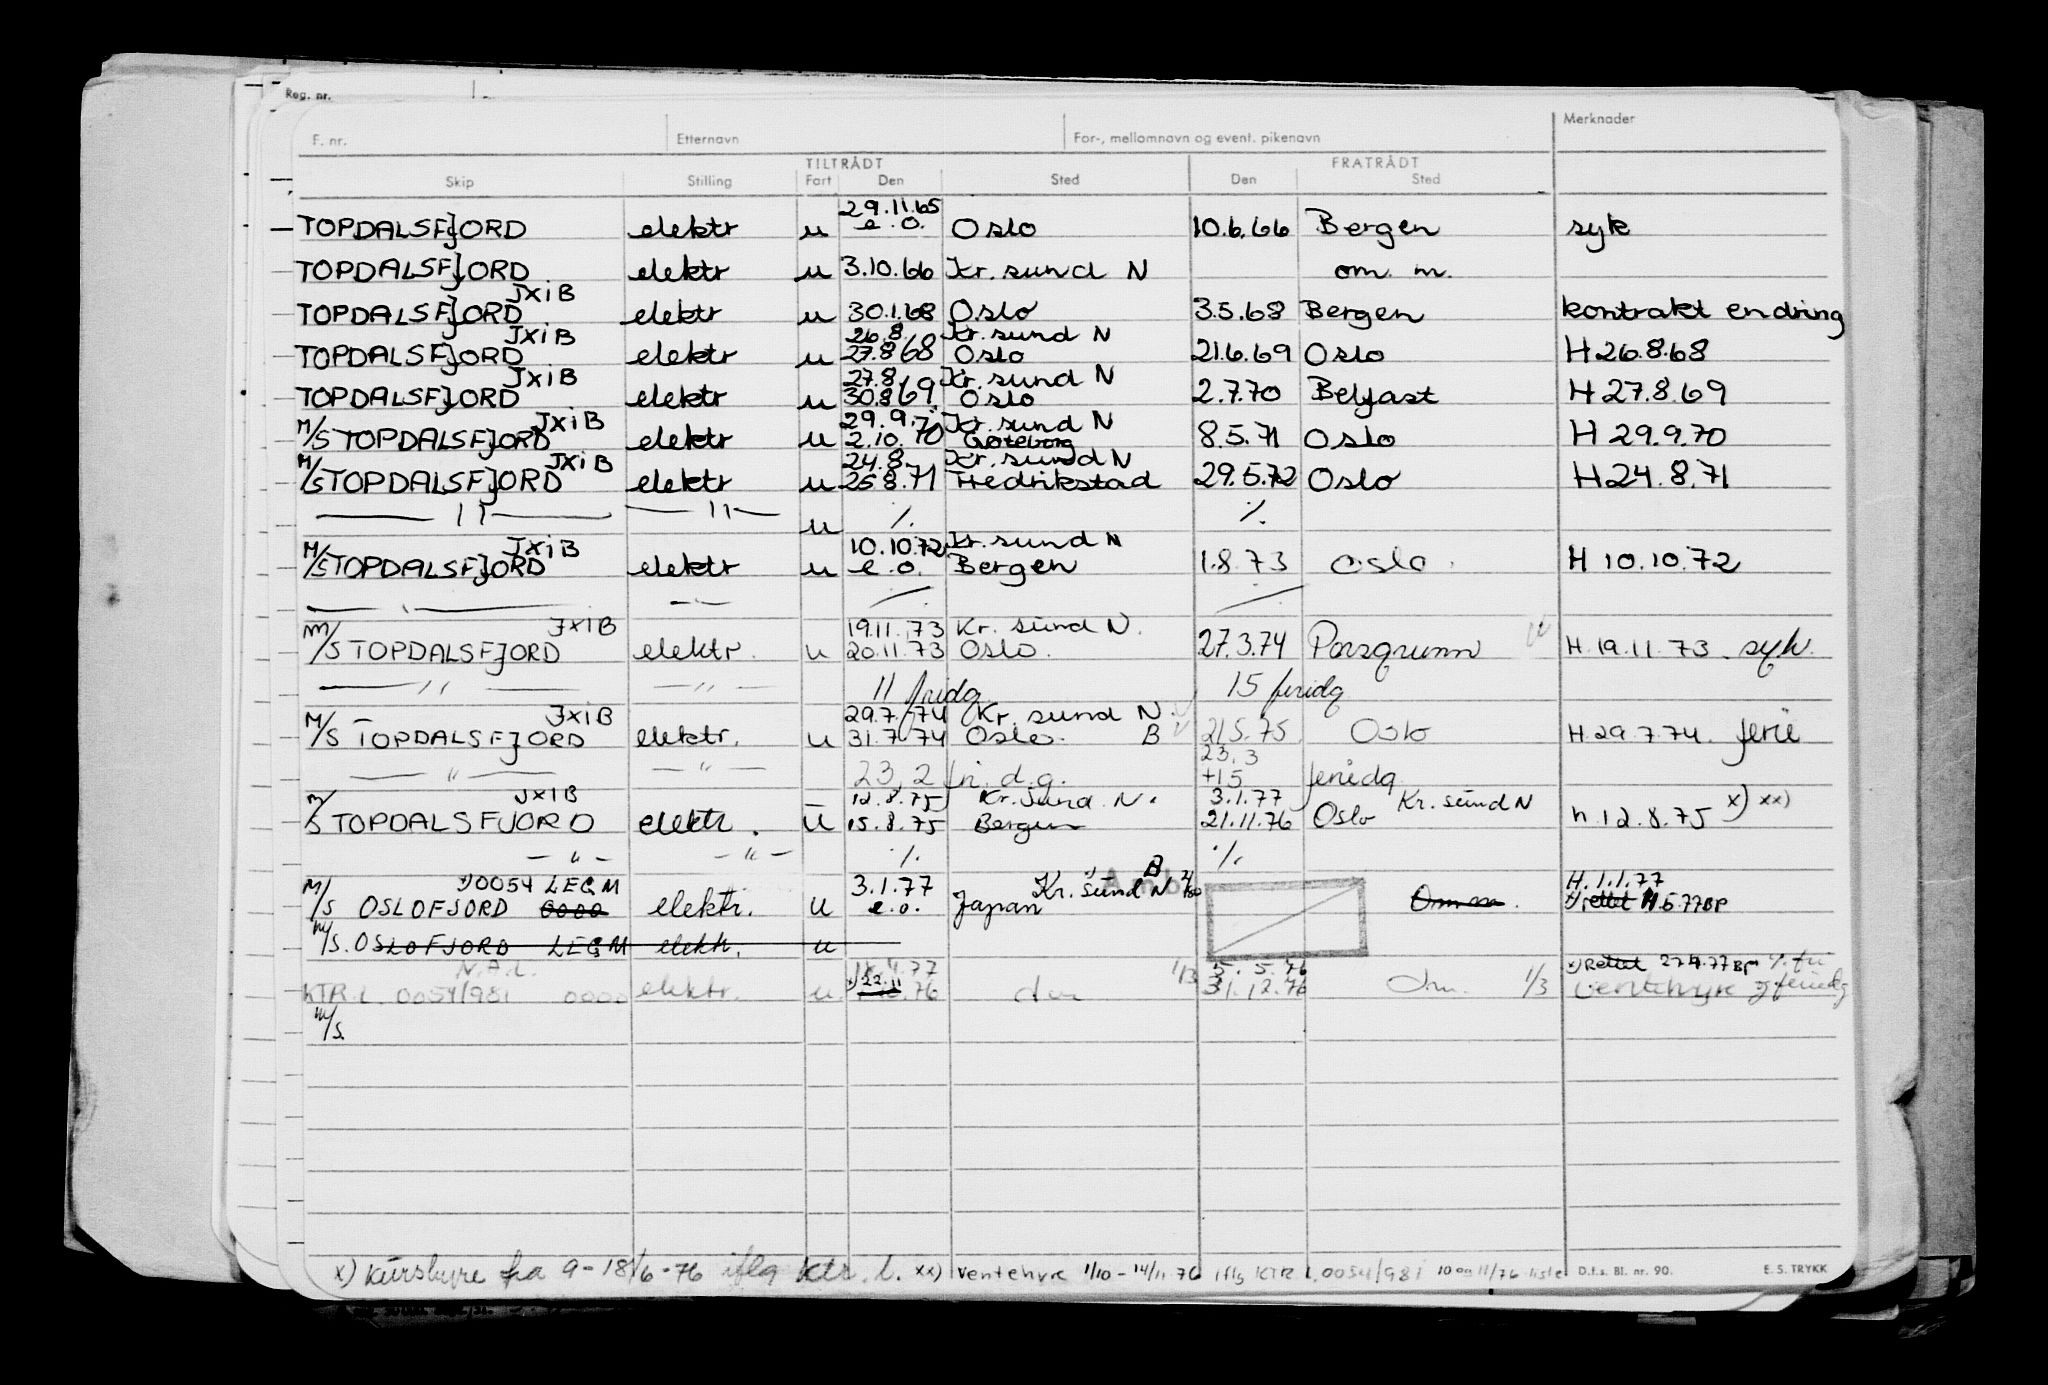 Reg. nr.
F. nr. Etternavn For-, mellomnavn og event. pikenavn Merknader
TILTRÅDT FRATRÅDT
Skip Stilling Fart Den Sted Den Sted
29.11.65
TOPDALSFJORD elektr u e.o. Oslo 10.6.66 Bergen syk
TOPDALSFJORD elektr u 3.10.66 Kr.sund N om. m.
JXIB
TOPDALSFJORD elektr u 30.1.68 Oslo 3.5.68 Bergen kontrakt endring
JXIB 26.8. Kr.sund N
TOPDALSFJORD elektr u 27.8.68 Oslo 21.6.69 Oslo H 26.8.68
JXIB 27.8. Kr.sund N
TOPDALSFJORD elektr u 30.8.69. Oslo 2.7.70 Belfast H 27.8.69
JXIB 29.9. Kr.sund N
M/S TOPDALSFJORD elektr u 2.10.70 Göteborg 8.5.71 Oslo H 29.9.70
JXIB 24.8. Kr.sund N
M/S TOPDALSFJORD elektr u 25.8.71 Fredrikstad 29.5.72 Oslo H 24.8.71
— " — — " — u ·/. ·/.
JXIB 10.10.72 Kr.sund N
M/S TOPDALSFJORD elektr u e.o. Bergen 1.8.73 Oslo. H 10.10.72
— " — — " — ·/. ·/.
JXIB 19.11.73 Kr. sund N.
M/S TOPDALSFJORD elektr. u 20.11.73 Oslo. 27.3.74 Porsgrunn H. 19.11.73. syk.
— " — — " — 11 fridg 15 feridg
JXIB 29.7.74 Kr. sund N.
M/S TOPDALSFJORD elektr. u 31.7.74 Oslo. B 21.5.75 Oslo H. 29.7.74. ferie
— " — — " — 23,2 fri.d.g. 23,3 +15 feridg
JXIB 12.8.75 Kr.sund N. 3.1.77 Kr.sund N
M/S TOPDALSFJORD elektr. u 15.8.75 Bergen 21.11.76 Oslo h.12.8.75 x) xx)
— " — — " — ·/. ·/.
x) 0054 LEGM 3.1.77 Kr. sund N B H. 1.1.77
M/S OSLOFJORD 0000 elektr. u e.o. Japan Omm. x) rettet 11.5.77 BP
M/S. OSLOFJORD LEGM elektr. u
N.A.L. 5.5.76 x) Rettet 27.4.77 BP
KTR.L. 0054/981 0000 elektr. u x) 22.11.76 1/13 31.12.76 1/3 ventehyre feridg
M/S.
x) kurshyre fra 9-18/6-76 iflg ktr. l. xx) ventehyre 1/10 - 14/11 76 iflg KTR L. 0054/981 10 og 11/76 liste D.f.s. Bl. nr. 90. E. S. TRYKK